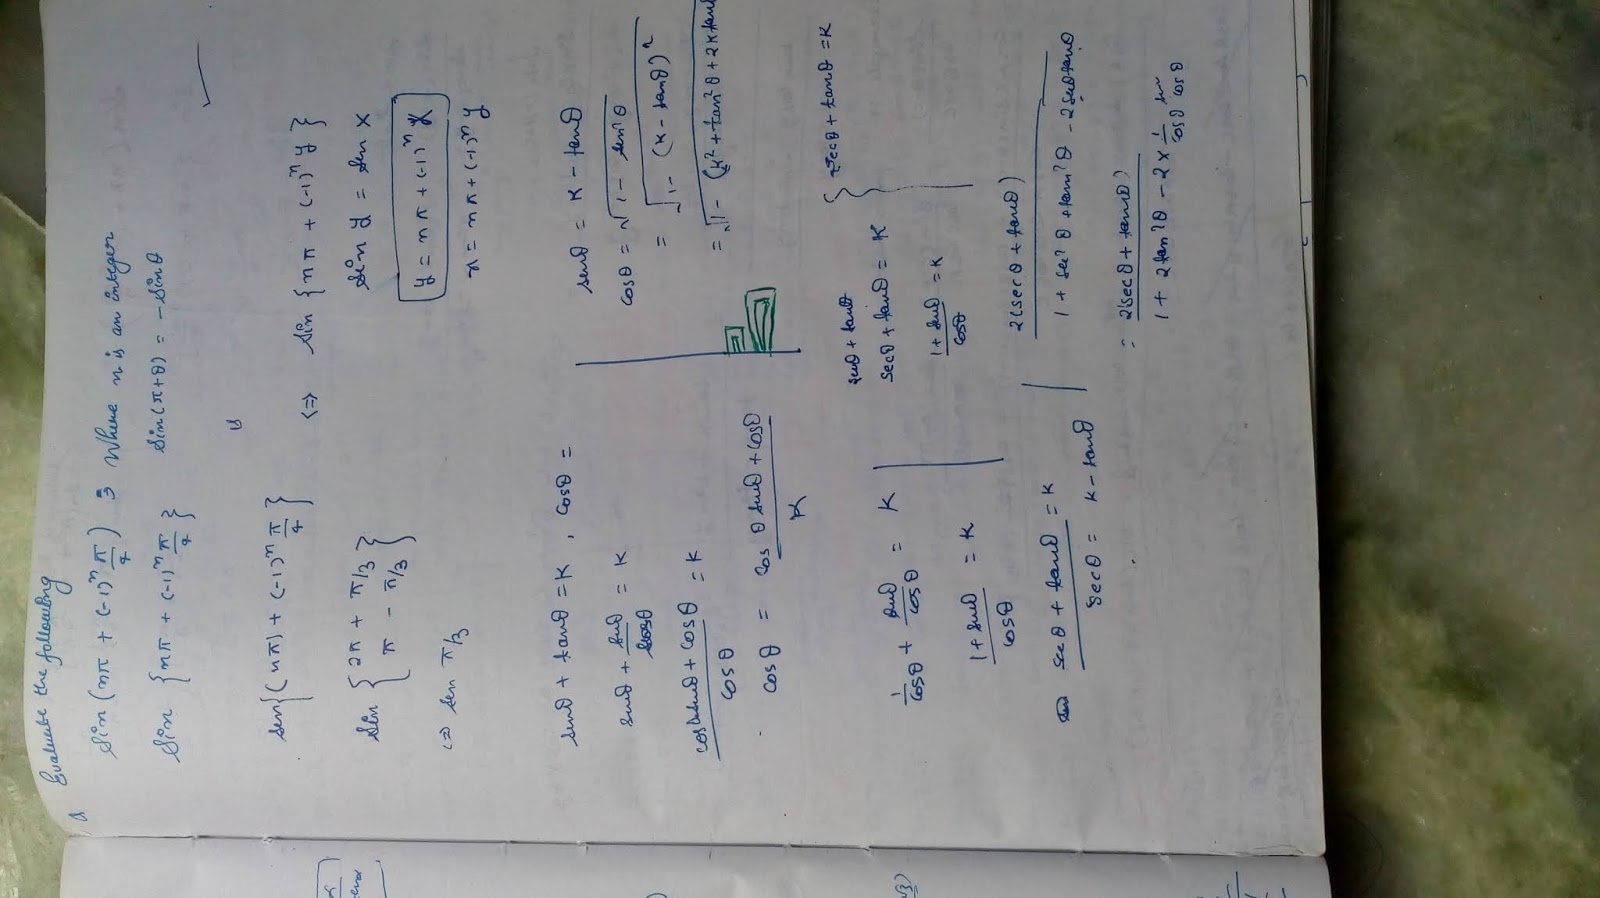 Evaluate the following
Sin (nπ + (-1)ⁿ π/4) ; Where n is an integer
Sin {nπ + (-1)ⁿ π/4}
Sin(π+θ) = -Sinθ
Sin{(nπ) + (-1)ⁿ π/4}
<=> Sin {nπ + (-1)ⁿ y}
Sin {2π + π/3
π - π/3}
Sin y = Sin x
y = nπ + (-1)ⁿ x
<=> Sin π/3
x = nπ + (-1)ⁿ y
sinθ + tanθ = K, cosθ =
sinθ + sinθ/cosθ = K
cosθ sinθ + cosθ / cosθ = K
cosθ = cosθ sinθ + cosθ / K
sinθ = K - tanθ
cosθ = √1 - sin²θ
= √1 - (K - tanθ)²
= √1 - (K² + tan²θ + 2K tanθ
1/cosθ + sinθ/cosθ = K
1 + sinθ / cosθ = K
secθ + tanθ = K
secθ = K - tanθ
sinθ + tanθ
secθ + tanθ = K
1 + sinθ / cosθ = K
} secθ + tanθ = K
2(secθ + tanθ) / 1 + sec²θ + tan²θ - 2secθtanθ
= 2(secθ + tanθ) / 1 + 2tan²θ - 2 × 1/cosθ sin/cosθ